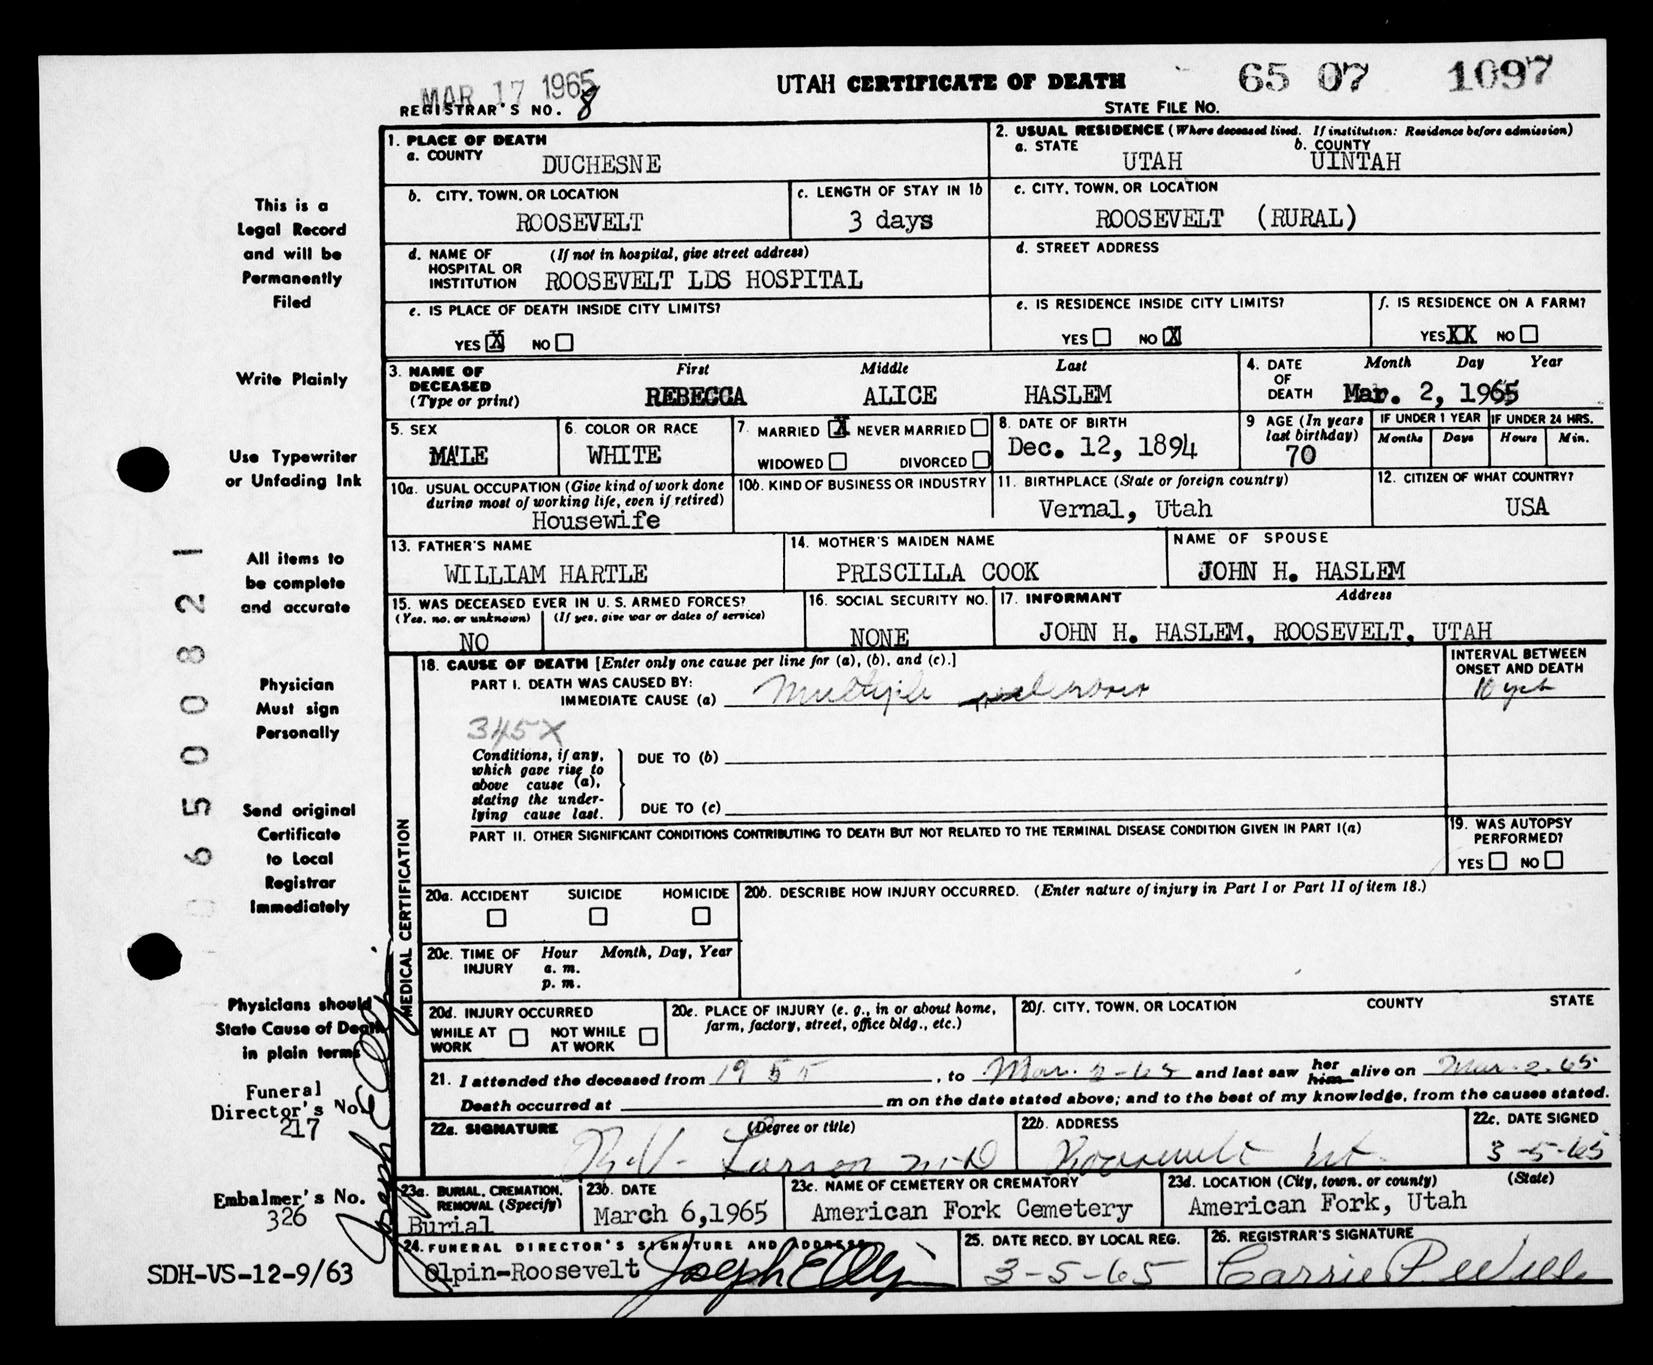 MAR 17 1965
UTAH CERTIFICATE OF DEATH
65 07 1097
REGISTRAR'S NO. 8
STATE FILE NO.
1. PLACE OF DEATH
a. COUNTY DUCHESNE
2. USUAL RESIDENCE (Where deceased lived. If institution: Residence before admission)
a. STATE UTAH b. COUNTY UINTAH
b. CITY, TOWN, OR LOCATION ROOSEVELT
c. LENGTH OF STAY IN 1b 3 days
c. CITY, TOWN, OR LOCATION ROOSEVELT (RURAL)
d. NAME OF HOSPITAL OR INSTITUTION (If not in hospital, give street address)
ROOSEVELT LDS HOSPITAL
d. STREET ADDRESS
e. IS PLACE OF DEATH INSIDE CITY LIMITS?
YES X NO
e. IS RESIDENCE INSIDE CITY LIMITS?
YES NO X
f. IS RESIDENCE ON A FARM?
YES XX NO
3. NAME OF DECEASED (Type or print)
First Middle Last
REBECCA ALICE HASLEM
4. DATE OF DEATH Month Day Year
Mar. 2, 1965
5. SEX MALE
6. COLOR OR RACE WHITE
7. MARRIED X NEVER MARRIED
WIDOWED DIVORCED
8. DATE OF BIRTH Dec. 12, 1894
9 AGE (In years last birthday) 70
IF UNDER 1 YEAR Months Days
IF UNDER 24 HRS. Hours Min.
10a. USUAL OCCUPATION (Give kind of work done during most of working life, even if retired)
Housewife
10b. KIND OF BUSINESS OR INDUSTRY
11. BIRTHPLACE (State or foreign country)
Vernal, Utah
12. CITIZEN OF WHAT COUNTRY?
USA
13. FATHER'S NAME
WILLIAM HARTLE
14. MOTHER'S MAIDEN NAME
PRISCILLA COOK
NAME OF SPOUSE
JOHN H. HASLEM
15. WAS DECEASED EVER IN U. S. ARMED FORCES?
(Yes, no, or unknown) (If yes, give war or dates of service)
NO
16. SOCIAL SECURITY NO.
NONE
17. INFORMANT Address
JOHN H. HASLEM, ROOSEVELT, UTAH
18. CAUSE OF DEATH [Enter only one cause per line for (a), (b), and (c).]
INTERVAL BETWEEN ONSET AND DEATH
PART I. DEATH WAS CAUSED BY:
IMMEDIATE CAUSE (a) Multiple
345X
Conditions, if any, which gave rise to above cause (a), stating the underlying cause last.
DUE TO (b)
DUE TO (c)
PART II. OTHER SIGNIFICANT CONDITIONS CONTRIBUTING TO DEATH BUT NOT RELATED TO THE TERMINAL DISEASE CONDITION GIVEN IN PART I(a)
19. WAS AUTOPSY PERFORMED?
YES NO
MEDICAL CERTIFICATION
20a. ACCIDENT SUICIDE HOMICIDE
20b. DESCRIBE HOW INJURY OCCURRED. (Enter nature of injury in Part I or Part II of item 18.)
20c. TIME OF INJURY Hour Month, Day, Year
a. m.
p. m.
20d. INJURY OCCURRED
WHILE AT WORK NOT WHILE AT WORK
20e. PLACE OF INJURY (e. g., in or about home, farm, factory, street, office bldg., etc.)
20f. CITY, TOWN, OR LOCATION COUNTY STATE
21. I attended the deceased from 1955, to Mar. 2-65 and last saw her him alive on Mar-2-65
Death occurred at m on the date stated above; and to the best of my knowledge, from the causes stated.
22a. SIGNATURE (Degree or title)
R.V. Larson M.D
22b. ADDRESS
Roosevelt Ut.
22c. DATE SIGNED
3-5-65
23a. BURIAL, CREMATION, REMOVAL (Specify)
Burial
23b. DATE
March 6, 1965
23c. NAME OF CEMETERY OR CREMATORY
American Fork Cemetery
23d. LOCATION (City, town, or county) (State)
American Fork, Utah
24. FUNERAL DIRECTOR'S SIGNATURE AND ADDRESS
Olpin-Roosevelt Joseph E Olpin
25. DATE RECD. BY LOCAL REG.
3-5-65
26. REGISTRAR'S SIGNATURE
This is a
Legal Record
and will be
Permanently
Filed
Write Plainly
Use Typewriter
or Unfading Ink
All items to
be complete
and accurate
Physician
Must sign
Personally
Send original
Certificate
to Local
Registrar
Immediately
Physicians should
State Cause of Death
in plain terms
Funeral
Director's No.
217
Embalmer's No.
326
SDH-VS-12-9/63
0 6 5 0 0 8 2 1
Joseph E Olpin